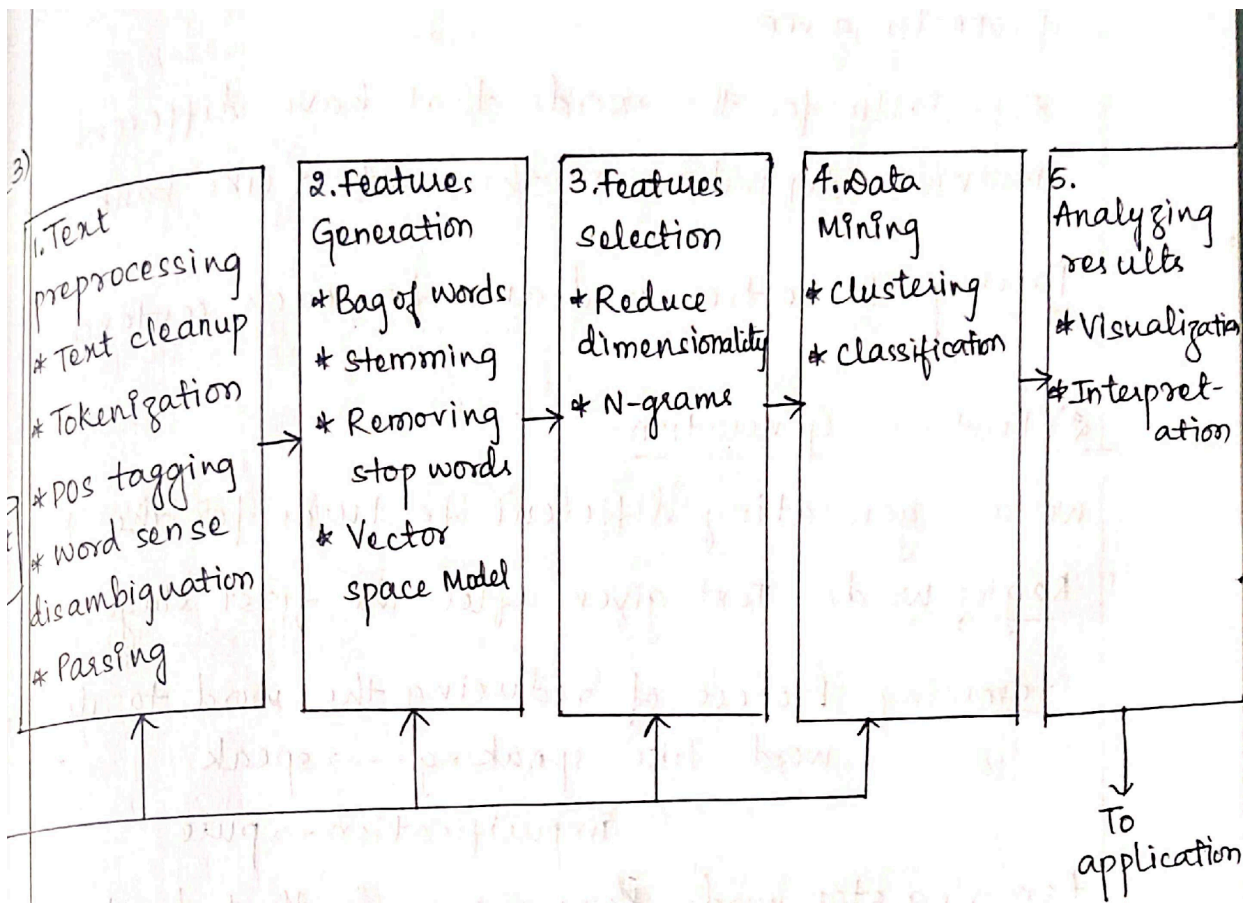 3)
1. Text
preprocessing
* Text cleanup
* Tokenization
* POS tagging
* word sense
disambiguation
* Parsing
2. features
Generation
* Bag of words
* stemming
* Removing
stop words
* Vector
space Model
3. features
selection
* Reduce
dimensionality
* N-grams
4. Data
Mining
* clustering
* classification
5.
Analyzing
results
* Visualization
* Interpret-
ation
To
application